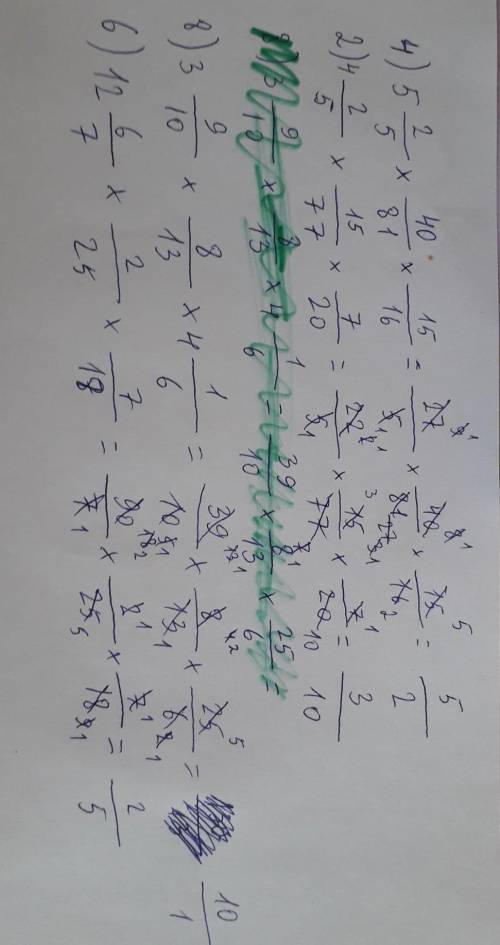 4) 5 2/5 × 40/81 × 15/16 = 27/5 × 40/81 × 15/16 = 5/2
2) 4 2/5 × 15/77 × 7/20 = 22/5 × 15/77 × 7/20 = 3/10
3 9/10 × 8/13 × 4 1/6 = 39/10 × 8/13 × 25/6 =
8) 3 9/10 × 8/13 × 4 1/6 = 39/10 × 8/13 × 25/6 = 10/1
6) 12 6/7 × 2/25 × 7/18 = 90/7 × 2/25 × 7/18 = 2/5